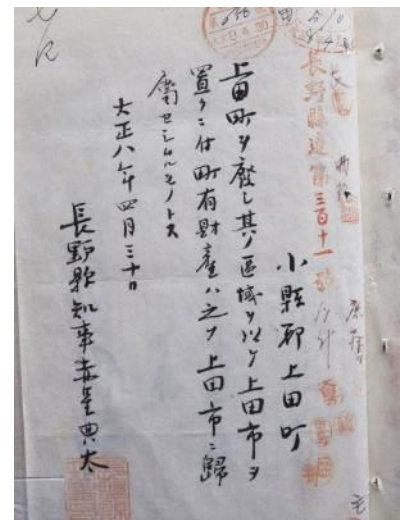 長野縣達第三百十一號
小縣郡上田町
上田町ヲ廢シ其ノ區域ヲ以テ上田市ヲ
置クニ付町有財產ハ之ヲ上田市ニ歸
屬セシムルモノトス
大正八年四月三十日
長野縣知事赤星典太